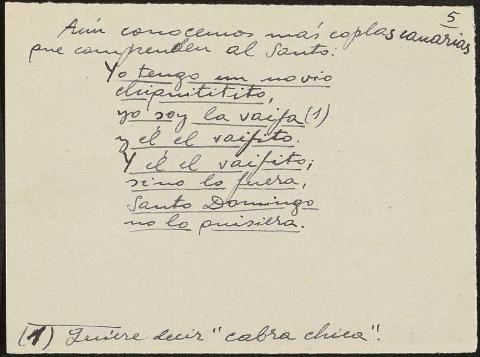 5
Aún conocemos más coplas canarias
que comprenden al Santo:
Yo tengo un novio
chiquititito,
yo soy la vaifa (1)
y él el vaifito.
Y él el vaifito;
sino lo fuera,
Santo Domingo
no lo quisiera.
(1) Quiere decir "cabra chica".